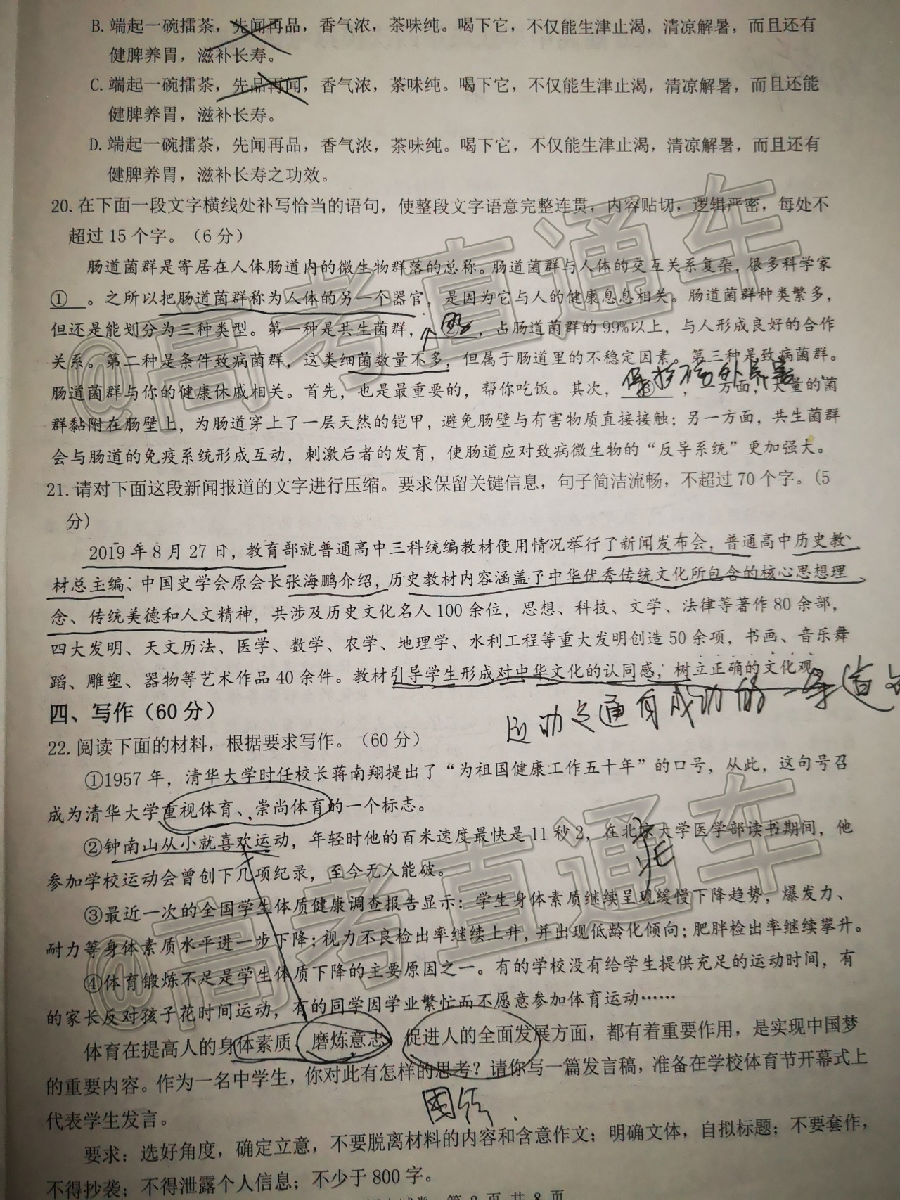 B. 端起一碗擂茶，先闻再品，香气浓，茶味纯。喝下它，不仅能生津止渴，清凉解暑，而且还有
健脾养胃，滋补长寿。
C. 端起一碗擂茶，先品再闻，香气浓，茶味纯。喝下它，不仅能生津止渴，清凉解暑，而且还能
健脾养胃，滋补长寿。
D. 端起一碗擂茶，先闻再品，香气浓，茶味纯。喝下它，不仅能生津止渴，清凉解暑，而且还有
健脾养胃，滋补长寿之功效。
20. 在下面一段文字横线处补写恰当的语句，使整段文字语意完整连贯，内容贴切，逻辑严密，每处不
超过 15 个字。（6 分）
肠道菌群是寄居在人体肠道内的微生物群落的总称。肠道菌群与人体的交互关系复杂，很多科学家
①。之所以把肠道菌群称为人体的另一个器官，是因为它与人的健康息息相关。肠道菌群种类繁多，
但还是能划分为三种类型。第一种是共生菌群，②，占肠道菌群的 99%以上，与人形成良好的合作
关系。第二种是条件致病菌群，这类细菌数量不多，但属于肠道里的不稳定因素。第三种是致病菌群。
肠道菌群与你的健康休戚相关。首先，也是最重要的，帮你吃饭。其次，③，一方面，大量的菌
保护 外界
群黏附在肠壁上，为肠道穿上了一层天然的铠甲，避免肠壁与有害物质直接接触；另一方面，共生菌群
会与肠道的免疫系统形成互动，刺激后者的发育，使肠道应对致病微生物的“反导系统”更加强大。
21. 请对下面这段新闻报道的文字进行压缩。要求保留关键信息，句子简洁流畅，不超过 70 个字。（5
分）
2019 年 8 月 27 日，教育部就普通高中三科统编教材使用情况举行了新闻发布会，普通高中历史教
材总主编、中国史学会原会长张海鹏介绍，历史教材内容涵盖了中华优秀传统文化所包含的核心思想理
念、传统美德和人文精神，共涉及历史文化名人 100 余位，思想、科技、文学、法律等著作 80 余部，
四大发明、天文历法、医学、数学、农学、地理学、水利工程等重大发明创造 50 余项，书画、音乐舞
蹈、雕塑、器物等艺术作品 40 余件。教材引导学生形成对中华文化的认同感，树立正确的文化观。
四、写作（60 分）
运动是通向成功的一条道路
22. 阅读下面的材料，根据要求写作。（60 分）
①1957 年，清华大学时任校长蒋南翔提出了“为祖国健康工作五十年”的口号，从此，这句号召
成为清华大学重视体育、崇尚体育的一个标志。
②钟南山从小就喜欢运动，年轻时他的百米速度最快是 11 秒 2，在北京大学医学部读书期间，他
参加学校运动会曾创下几项纪录，至今无人能破。
③最近一次的全国学生体质健康调查报告显示：学生身体素质继续呈现缓慢下降趋势，爆发力、
耐力等身体素质水平进一步下降；视力不良检出率继续上升，并出现低龄化倾向；肥胖检出率继续攀升。
④体育锻炼不足是学生体质下降的主要原因之一。有的学校没有给学生提供充足的运动时间，有
的家长反对孩子花时间运动，有的同学因学业繁忙而不愿意参加体育运动……
体育在提高人的身体素质、磨炼意志、促进人的全面发展方面，都有着重要作用，是实现中国梦
的重要内容。作为一名中学生，你对此有怎样的思考？请你写一篇发言稿，准备在学校体育节开幕式上
代表学生发言。
要求：选好角度，确定立意，不要脱离材料的内容和含意作文；明确文体，自拟标题；不要套作，
不得抄袭；不得泄露个人信息；不少于 800 字。
第 8 页 共 8 页
@高考直通车
@高考直通车